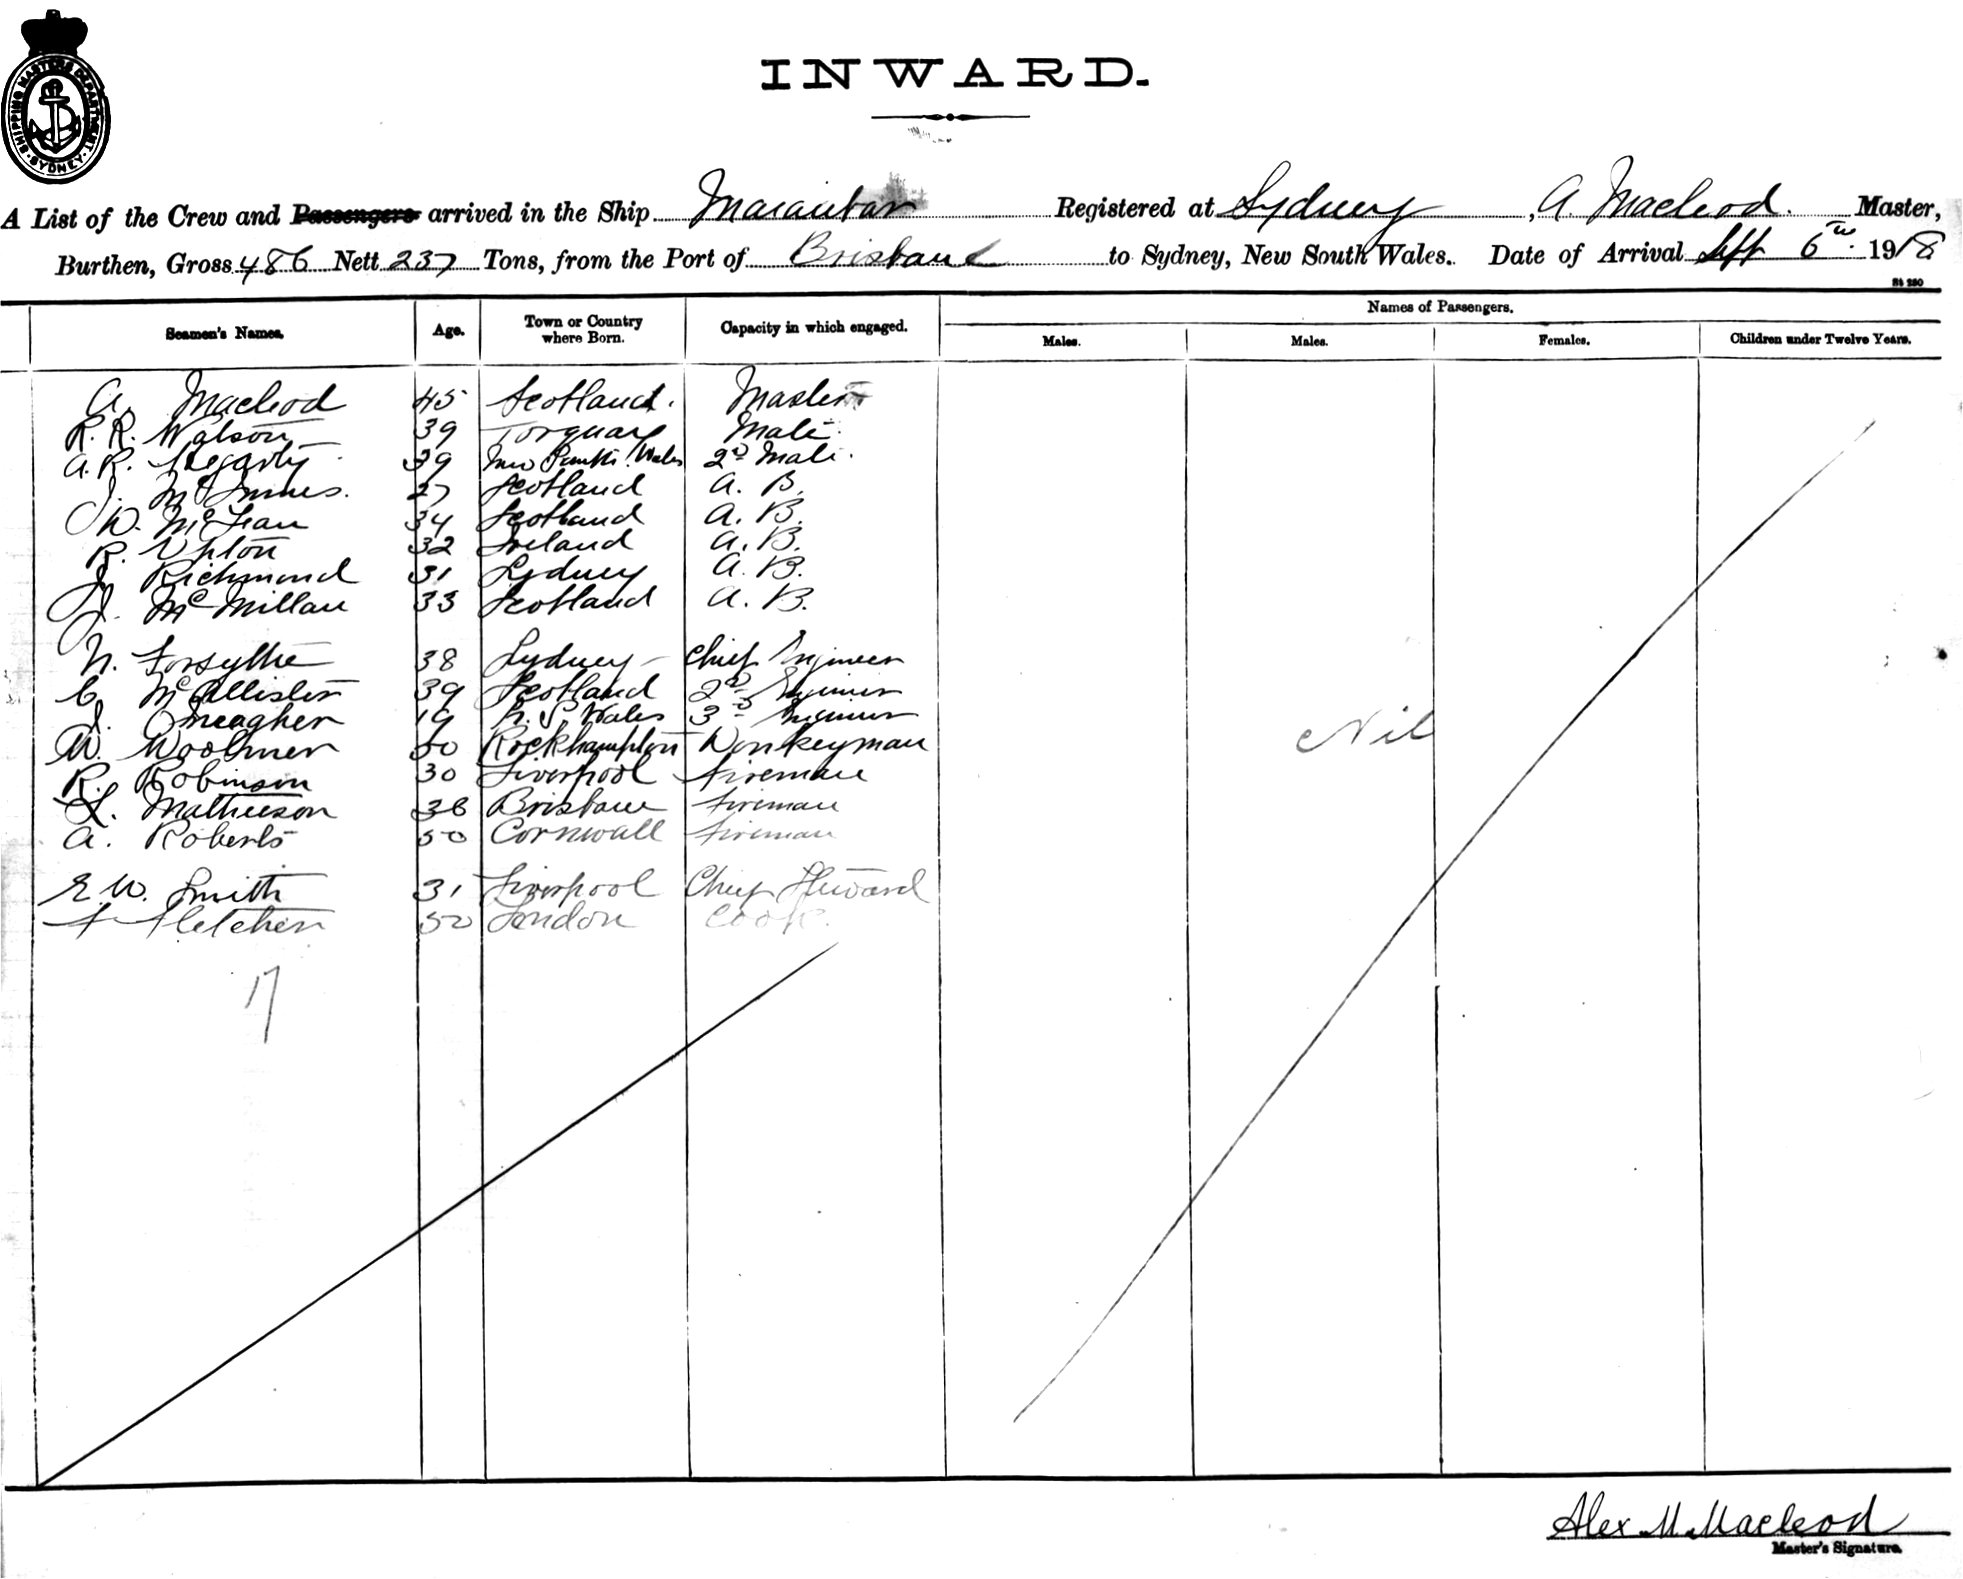 SHIPPING MASTERS DEPARTMENT. SYDNEY.
INWARD.
A List of the Crew and Passengers arrived in the Ship Maranbar Registered at Sydney, A. Macleod. Master,
Burthen, Gross 486 Nett 237 Tons, from the Port of Brisbane to Sydney, New South Wales. Date of Arrival Sept 6th 1918
St 250
Names of Passengers.
Seamen's Names. Age. Town or Country where Born. Capacity in which engaged. Males. Males. Females. Children under Twelve Years.
A. Macleod 45 Scotland. Master
R. R. Watson 39 Torquay Mate
A. R. Hegarty 39 New South Wales 2nd Mate.
J. McInnes. 27 Scotland A. B.
W. McLean 34 Scotland A. B.
R. Upton 32 Ireland A. B.
J. Richmond 31 Sydney A. B.
J. McMillan 33 Scotland A. B.
N. Forsythe 38 Sydney Chief Engineer
C McAllister 39 Scotland 2nd Engineer
J. Meagher 19 N. S. Wales 3rd Engineer
W. Woolmer 50 Rockhampton Donkeyman
R. Robinson 30 Liverpool Fireman
L. Mathieson 38 Brisbane Fireman
A. Roberts 50 Cornwall Fireman
E. W. Smith 31 Liverpool Chief Steward
F Fletcher 50 London Cook.
Nil
17
Alex M Macleod
Master's Signature.